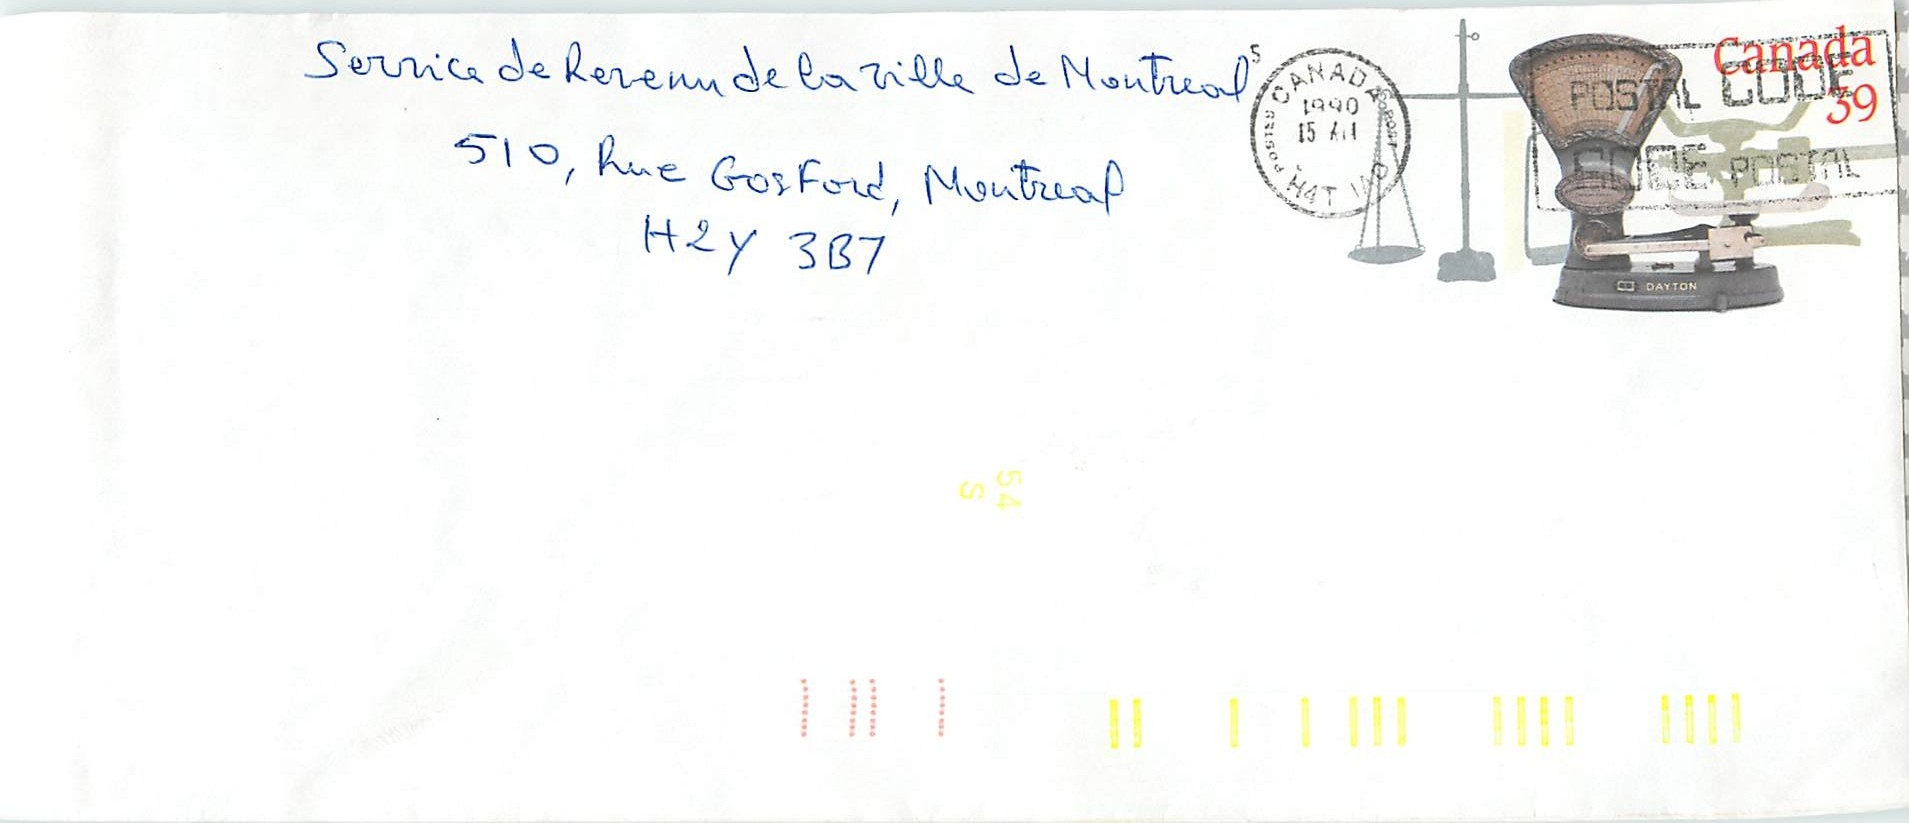 Service de Revenu de la ville de Montreal
510, Rue Gosford, Montreal
H2Y 3B7
5
CANADA
1990
15
H4T 1A0
POSTED
Canada
39
POSTAL CODE
CODE POSTAL
DAYTON
54
S